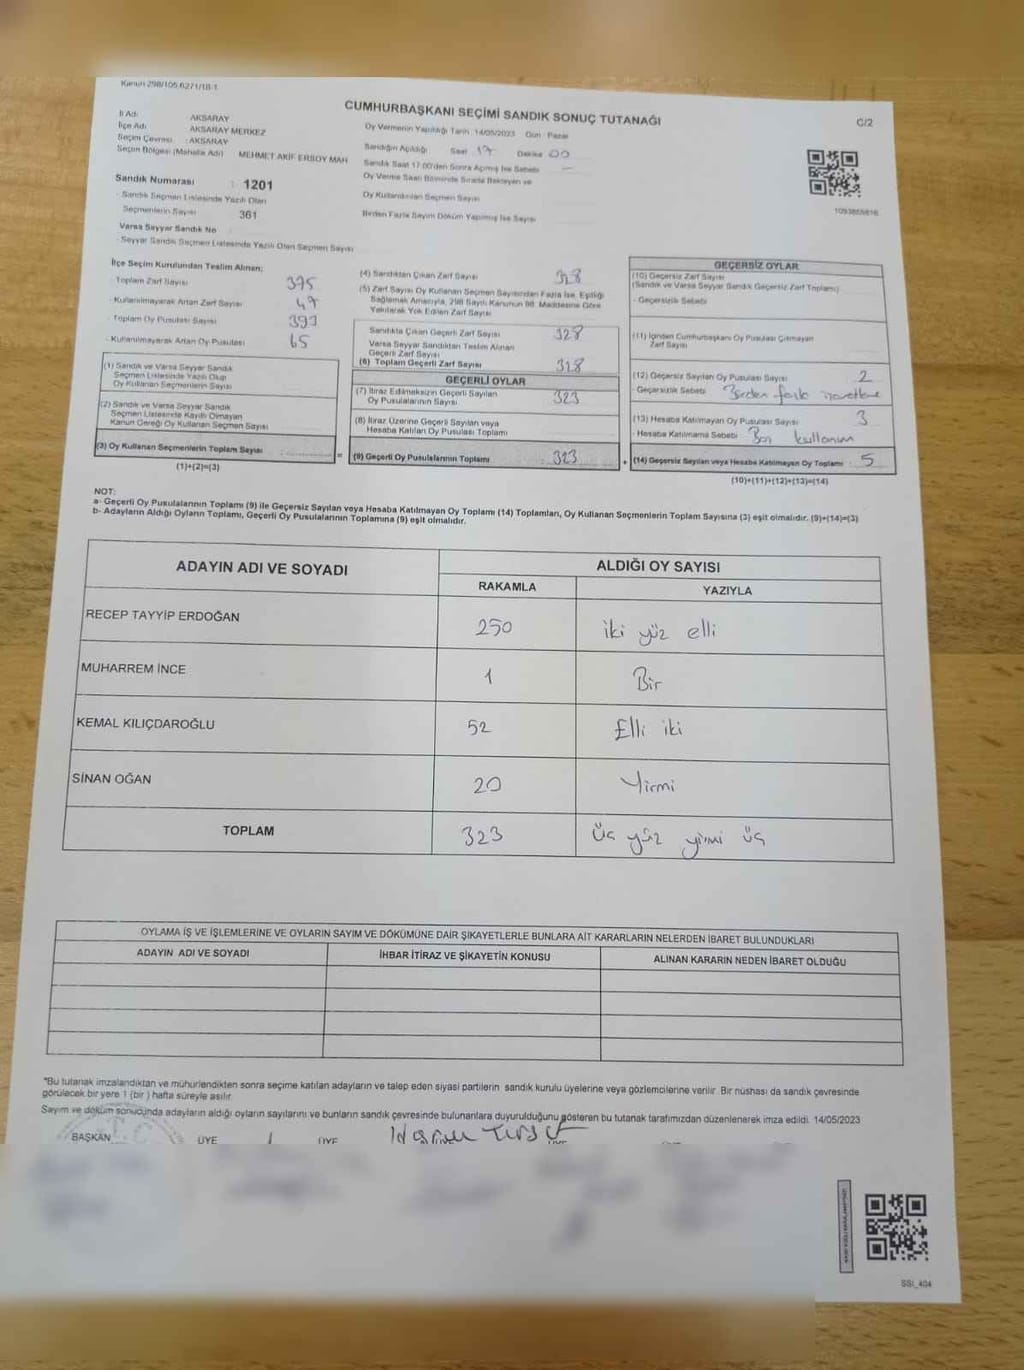 Kanun 298/105,6271/18-1
CUMHURBAŞKANI SEÇİMİ SANDIK SONUÇ TUTANAĞI
C/2
İl Adı AKSARAY
İlçe Adı AKSARAY MERKEZ
Seçim Çevresi : AKSARAY
Seçim Bölgesi (Mahalle Adı) MEHMET AKİF ERSOY MAH
Sandık Numarası : 1201
- Sandık Seçmen Listesinde Yazılı Olan
Seçmenlerin Sayısı 361
Varsa Seyyar Sandık No
- Seyyar Sandık Seçmen Listesinde Yazılı Olan Seçmen Sayısı
Oy Vermenin Yapıldığı Tarih 14/05/2023 Gün : Pazar
Sandığın Açıldığı Saat 17 Dakika 00
Sandık Saat 17.00'den Sonra Açılmış İse Sebebi —
Oy Verme Saati Bitiminde Sırada Bekleyen ve
Oy Kullandırılan Seçmen Sayısı
Birden Fazla Sayım Döküm Yapılmış İse Sayısı
İlçe Seçim Kurulundan Teslim Alınan;
- Toplam Zarf Sayısı 375
- Kullanılmayarak Artan Zarf Sayısı 47
- Toplam Oy Pusulası Sayısı 393
- Kullanılmayarak Artan Oy Pusulası 65
(1) Sandık ve Varsa Seyyar Sandık
Seçmen Listesinde Yazılı Olup
Oy Kullanan Seçmenlerin Sayısı
(2) Sandık ve Varsa Seyyar Sandık
Seçmen Listesinde Kayıtlı Olmayan
Kanun Gereği Oy Kullanan Seçmen Sayısı
(3) Oy Kullanan Seçmenlerin Toplam Sayısı
(1)+(2)=(3)
(4) Sandıktan Çıkan Zarf Sayısı 328
(5) Zarf Sayısı Oy Kullanan Seçmen Sayısından Fazla İse, Eşitliği
Sağlamak Amacıyla, 298 Sayılı Kanunun 98. Maddesine Göre
Yakılarak Yok Edilen Zarf Sayısı
Sandıkta Çıkan Geçerli Zarf Sayısı 328
Varsa Seyyar Sandıktan Teslim Alınan
Geçerli Zarf Sayısı
(6) Toplam Geçerli Zarf Sayısı 328
GEÇERLİ OYLAR
(7) İtiraz Edilmeksizin Geçerli Sayılan
Oy Pusulalarının Sayısı 323
(8) İtiraz Üzerine Geçerli Sayılan veya
Hesaba Katılan Oy Pusulası Toplamı
(9) Geçerli Oy Pusulalarının Toplamı 323
GEÇERSİZ OYLAR
(10) Geçersiz Zarf Sayısı
(Sandık ve Varsa Seyyar Sandık Geçersiz Zarf Toplamı)
- Geçersizlik Sebebi
(11) İçinden Cumhurbaşkanı Oy Pusulası Çıkmayan
Zarf Sayısı
(12) Geçersiz Sayılan Oy Pusulası Sayısı 2
- Geçersizlik Sebebi Birden fazla
(13) Hesaba Katılmayan Oy Pusulası Sayısı 3
- Hesaba Katılmama Sebebi Boş kullanım
(14) Geçersiz Sayılan veya Hesaba Katılmayan Oy Toplamı : 5
(10)+(11)+(12)+(13)=(14)
NOT:
a- Geçerli Oy Pusulalarının Toplamı (9) ile Geçersiz Sayılan veya Hesaba Katılmayan Oy Toplamı (14) Toplamları, Oy Kullanan Seçmenlerin Toplam Sayısına (3) eşit olmalıdır. (9)+(14)=(3)
b- Adayların Aldığı Oyların Toplamı, Geçerli Oy Pusulalarının Toplamına (9) eşit olmalıdır.
ADAYIN ADI VE SOYADI ALDIĞI OY SAYISI
RAKAMLA YAZIYLA
RECEP TAYYİP ERDOĞAN 250 iki yüz elli
MUHARREM İNCE 1 Bir
KEMAL KILIÇDAROĞLU 52 Elli iki
SİNAN OĞAN 20 Yirmi
TOPLAM 323 Üç yüz yirmi üç
OYLAMA İŞ VE İŞLEMLERİNE VE OYLARIN SAYIM VE DÖKÜMÜNE DAİR ŞİKAYETLERLE BUNLARA AİT KARARLARIN NELERDEN İBARET BULUNDUKLARI
ADAYIN ADI VE SOYADI İHBAR İTİRAZ VE ŞİKAYETİN KONUSU ALINAN KARARIN NEDEN İBARET OLDUĞU
*Bu tutanak imzalandıktan ve mühürlendikten sonra seçime katılan adayların ve talep eden siyasi partilerin sandık kurulu üyelerine veya gözlemcilerine verilir. Bir nüshası da sandık çevresinde
görülecek bir yere 1 (bir) hafta süreyle asılır.
Sayım ve döküm sonucunda adayların aldığı oyların sayılarını ve bunların sandık çevresinde bulunanlara duyurulduğunu gösteren bu tutanak tarafımızdan düzenlenerek imza edildi. 14/05/2023
BAŞKAN ÜYE ÜYE
SSI_404